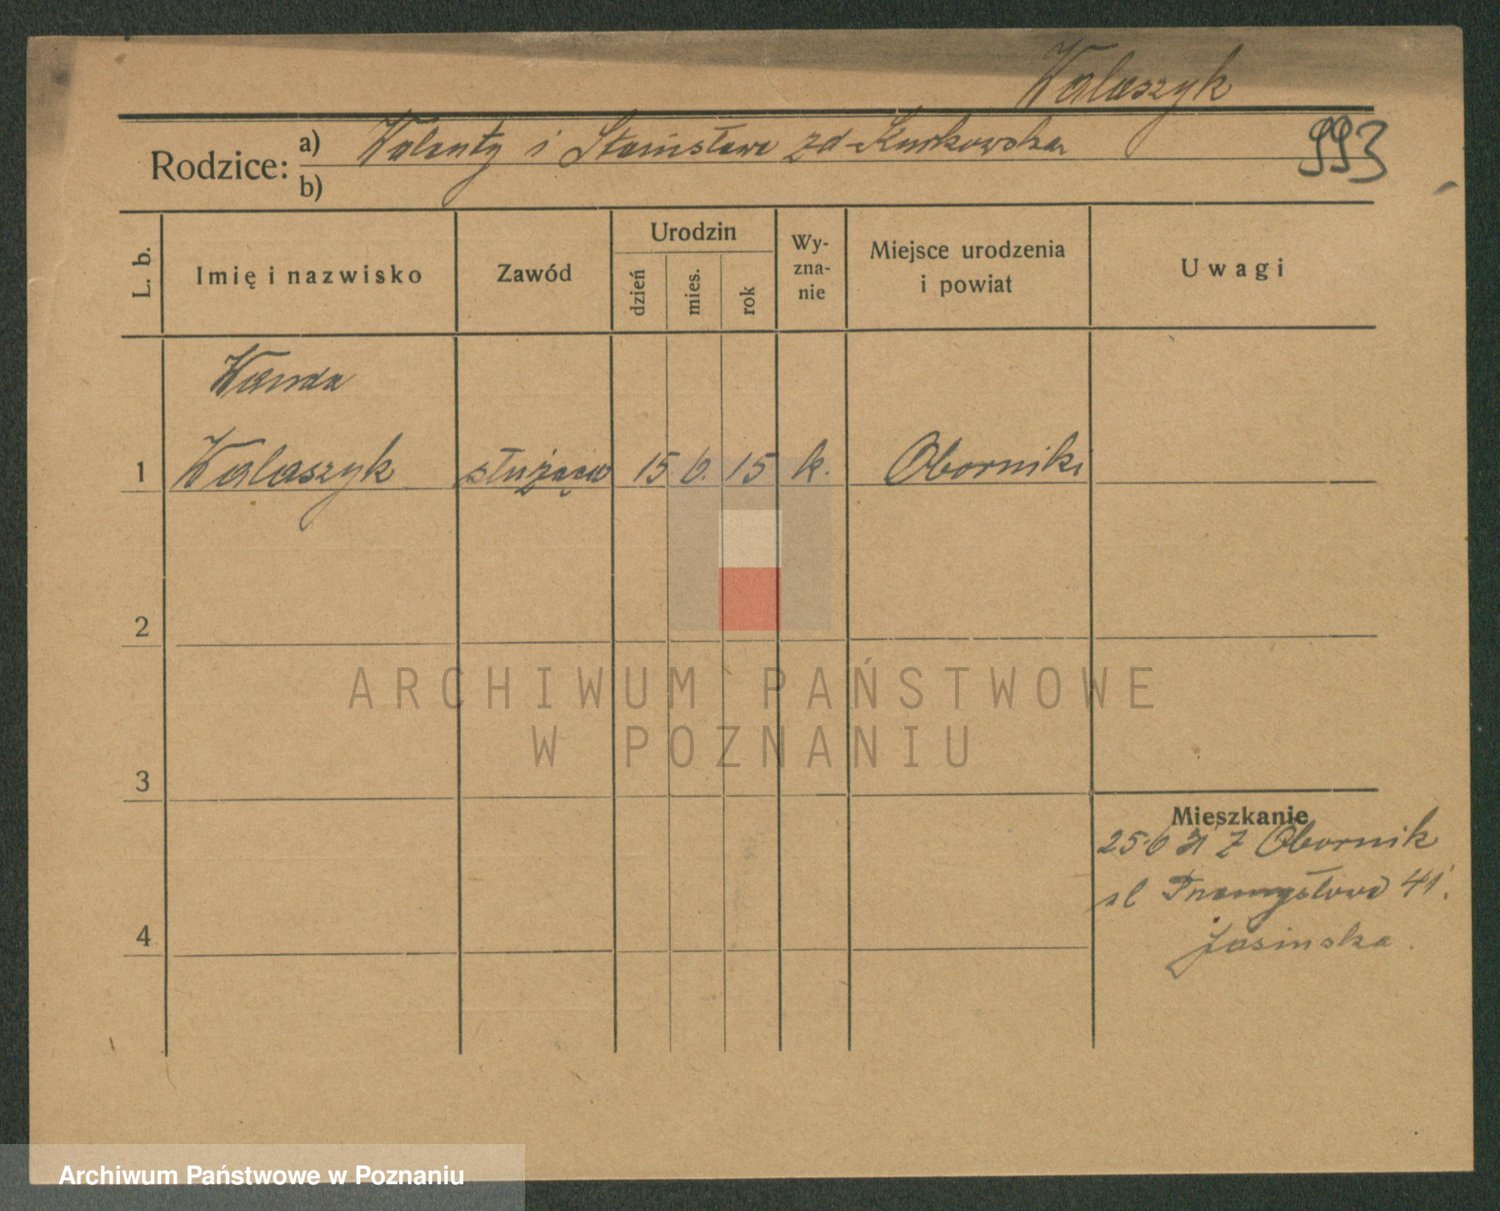 Walaszyk
993
Rodzice: a) Walenty i Stanisława zd Kurkowska
b)
L. b. Imię i nazwisko Zawód Urodzin dzień mies. rok Wy-zna-nie Miejsce urodzenia i powiat Uwagi
Wanda
1 Walaszyk służąca 15 6. 15 k. Oborniki
2
ARCHIWUM PAŃSTWOWE
W POZNANIU
3
Mieszkanie
25 6 31 z Obornik
ul Przemysłowa 41.
Jasinska
4
Archiwum Państwowe w Poznaniu